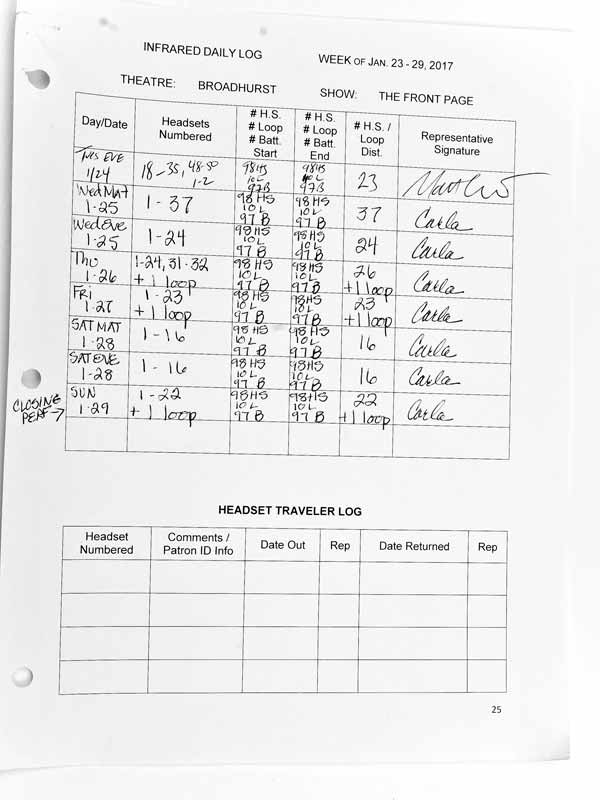 INFRARED DAILY LOG WEEK OF JAN. 23 - 29, 2017
THEATRE: BROADHURST SHOW: THE FRONT PAGE
Day/Date Headsets Numbered # H.S. # Loop # Batt. Start # H.S. # Loop # Batt. End # H.S. / Loop Dist. Representative Signature
TUES EVE 1/24 18-35, 48-50 1-2 98HS 10L 97B 98HS 10L 97B 23
Wed Mat 1-25 1-37 98HS 10L 97B 98HS 10L 97B 37 Carla
Wed Eve 1-25 1-24 98HS 10L 97B 98HS 10L 97B 24 Carla
Thu 1-26 1-24, 31-32 + 1 loop 98HS 10L 97B 98HS 10L 97B 26 +1 loop Carla
Fri 1-27 1-23 + 1 loop 98HS 10L 97B 98HS 10L 97B 23 +1 loop Carla
SAT MAT 1-28 1-16 98HS 10L 97B 98HS 10L 97B 16 Carla
SAT EVE 1-28 1-16 98HS 10L 97B 98HS 10L 97B 16 Carla
CLOSING PERF → SUN 1-29 1-22 + 1 loop 98HS 10L 97B 98HS 10L 97B 22 +1 loop Carla
HEADSET TRAVELER LOG
Headset Numbered Comments / Patron ID Info Date Out Rep Date Returned Rep
25